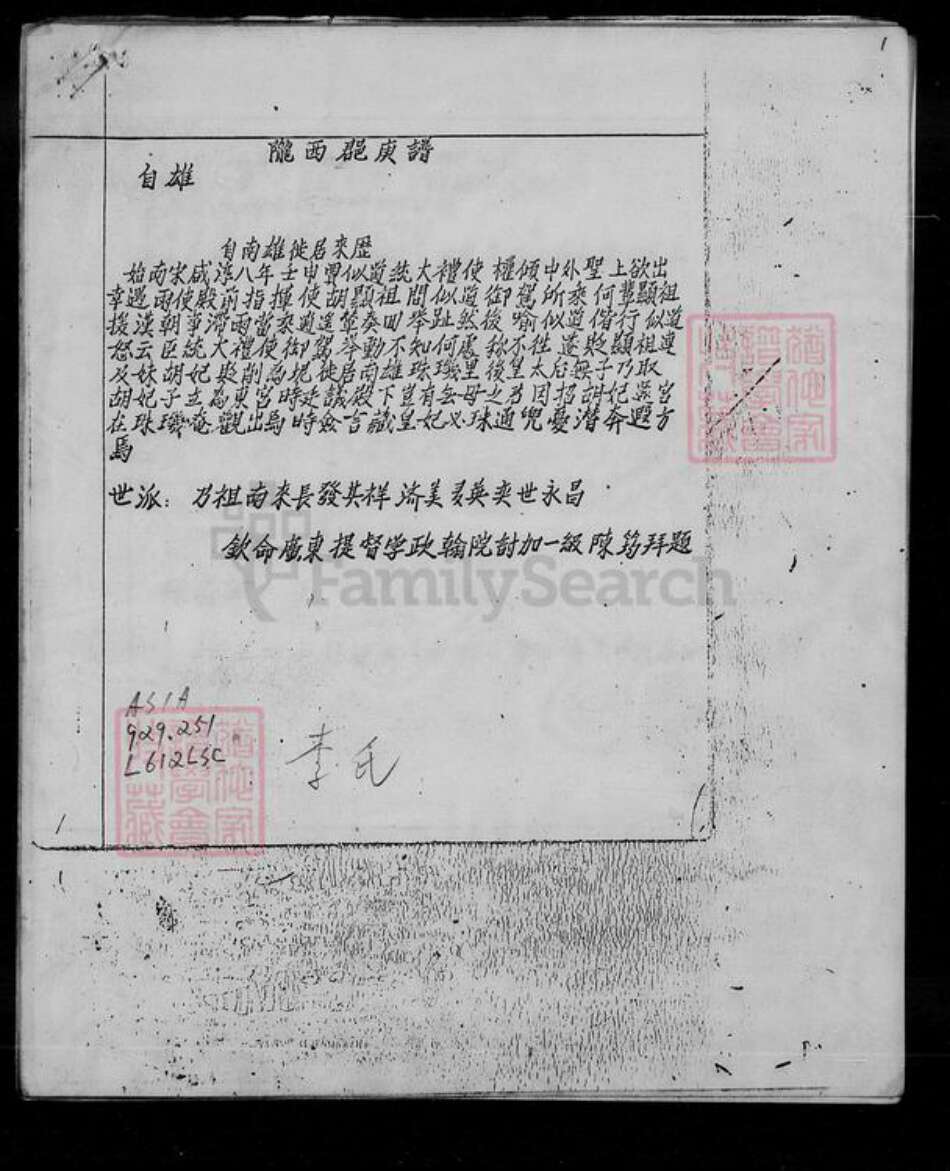 1
隴西郡庚譜
自雄
自南雄徙居來歷
始南宋咸淳八年壬申賈似道統大禮使權傾中外聖上欲出
幸遇雨使殿前指揮使胡顯祖問似道御駕所乘何輦顯祖
援漢朝事滯雨當乘逍遥輦癸回舉趾然後喻似道偕行似道
怒云臣統大禮使御駕舉動不知何處称不往遂貶顯祖連
及妹胡妃貶削為妃徙居南雄珠璣里後皇太后無子乃取
胡妃子立為東宮時廷議殿下豈有無母之乃因招胡妃還宮
在珠璣奄觀出焉時僉言識皇妃必珠通兜憂潛奔遐方
焉
世派：乃祖南来長發其祥濟美英奕世永昌
欽命廣東提督学政翰院討加一級陳拜題
FamilySearch
ASIA
929.251
L612LSC
李氏
1
1